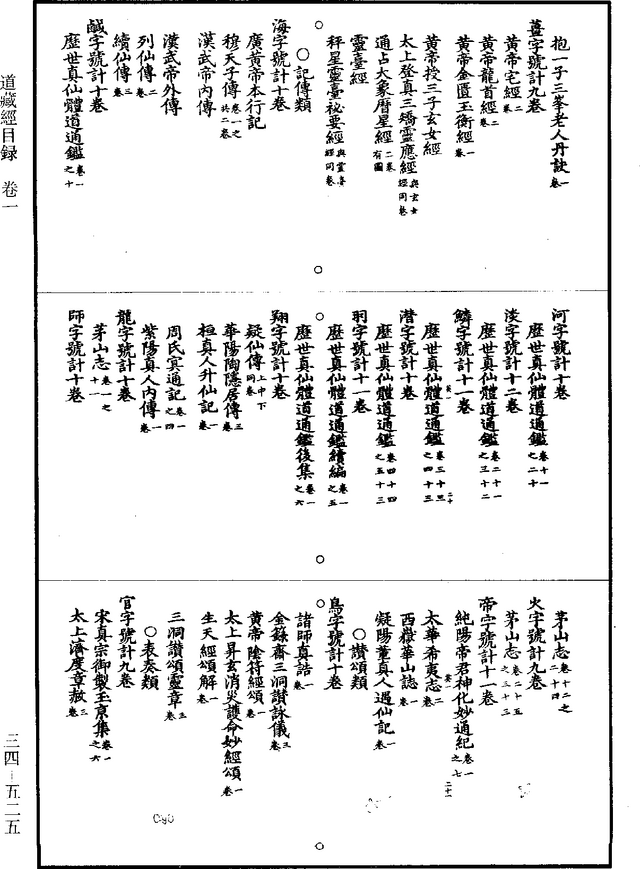 抱一子三峯老人丹訣一卷
薑字號計九卷
黃帝宅經二卷
黃帝龍首經二卷
黃帝金匱玉衡經一卷
黃帝授三子玄女經
太上登真三矯靈應經與玄女經同卷
通占大象曆星經二卷有圖
靈臺經
秤星靈臺祕要經與靈臺經同卷
○記傳類
海字號計十卷
廣黃帝本行記
穆天子傳卷一之六共二卷
漢武帝內傳
漢武帝外傳
列仙傳二卷
續仙傳三卷
鹹字號計十卷
歷世真仙體道通鑑卷一之十
河字號計十卷
歷世真仙體道通鑑卷十一之二十
淡字號計十二卷
歷世真仙體道通鑑卷二十一之三十二
鱗字號計十一卷
歷世真仙體道通鑑卷三十三之四十三
潛字號計十卷
歷世真仙體道通鑑卷四十四之五十三
羽字號計十一卷
歷世真仙體道通鑑續編卷一之五
歷世真仙體道通鑑後集卷一之六
翔字號計十卷
疑仙傳上中下同卷
華陽陶隱居傳三卷
桓真人升仙記一卷
周氏冥通記卷一之四
紫陽真人內傳一卷
龍字號計十卷
茅山志卷一之十一
師字號計十卷
茅山志卷十二之二十四
火字號計九卷
茅山志卷二十五之三十三
帝字號計十一卷
純陽帝君神化妙通紀卷一之七
太華希夷志二卷
西嶽華山誌一卷
凝陽董真人遇仙記一卷
○讚頌類
鳥字號計十卷
諸師真誥一卷
金籙齋三洞讚詠儀三卷
黃帝陰符經頌一卷
太上昇玄消災護命妙經頌一卷
生天經頌解一卷
三洞讚頌靈章三卷
○表奏類
官字號計九卷
宋真宗御製玉京集卷一之六
太上濟度章赦三卷
道藏經目録　卷一
三四—五二五